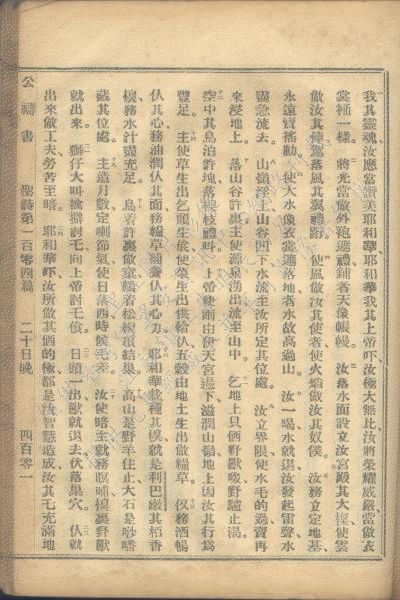 我其靈魂汝應當讚美耶和華耶和華我其上帝吓汝極大無比汝將榮耀威嚴當做衣
裳補一樣。將光當做外袍遮禮鋪者天像帳幔。汝落水面設立汝宮殿其大樑使雲
做汝其車駕落風其翼禮跡。使風做汝其使者使火焰做汝其奴僕。汝務立定地基
永遠賣搖動。使大水像衣裳遮落地者水故高過山。汝一喝水就退汝發起雷聲水
盡急流去。山嶺浮上山谷凹下水流至汝所定其位處。汝立界限使水毛的過賣再
來浸地上。落山谷許裏主使源泉湧出流至山中。乞地上只野獸啜野驢止渴。
空中其鳥泊許塊落枝禮。上帝使雨由伊天宮邊下滋潤山嶺地上因汝其行為
豐足。主使草生出乞頭生使菜生出供給仈五穀由地土生出做糧草。仅務酒暢
仈其心務油潤仈其面務糧草補養仈其心力。耶和華栽種其樹就是利巴嫩其栢香
樹務水汁盡充足。鳥着許裏做窠鸛着松樹頂結巢。高山是野羊住止大石是沙噃
藏其位處。主造月數定喇節氣使日落四時候毛差。汝使暗至就務暝晡樹裏野獸
就出來。獅仔大叫擒討乇向上帝討乇食。日頭一出獸就退去伏落巢穴。仈就
出來做工夫勞苦至暗。耶和華吓汝所做其極都是汝智慧造成汝其乇充滿地
公禱書　聖詩第一百零四篇　二十日晚　四百零一